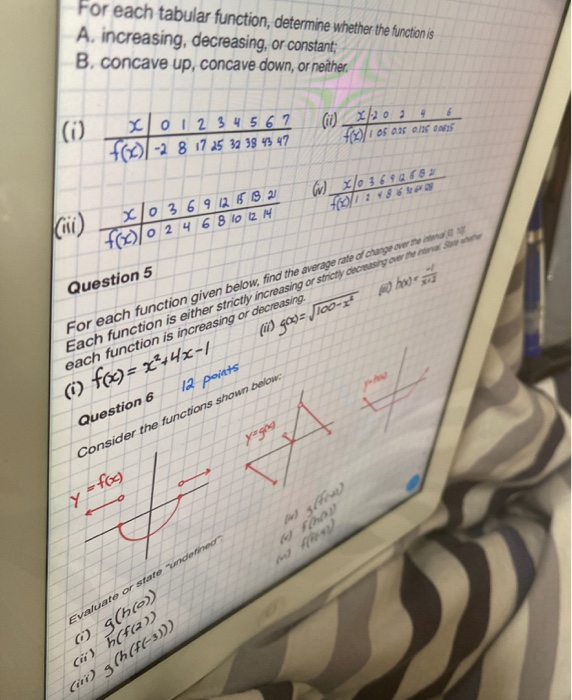 For each tabular function, determine whether the function is
A. increasing, decreasing, or constant;
B. concave up, concave down, or neither.
(i) x 0 1 2 3 4 5 6 7
f(x) -2 8 17 25 32 38 43 47
(ii) x
f(x) 1
(iii) x 0 3 6 9 12 15 18 21
f(x) 0 2 4 6 8 10 12 14
(iv) x 0 3 6 9 12
f(x) 1 2 4 8 16
Question 5
For each function given below, find the average rate of change over the interval
Each function is either strictly increasing or strictly decreasing over the interval. State whether
each function is increasing or decreasing.
(i) f(x) = x²+4x-1
(ii) g(x) = √100-x²
(iii) h(x) =
Question 6 12 points
Consider the functions shown below:
y = f(x)
y=g(x)
y=h(x)
Evaluate or state "undefined".
(i) g(h(0))
(ii) h(f(2))
(iii) g(h(f(-3)))